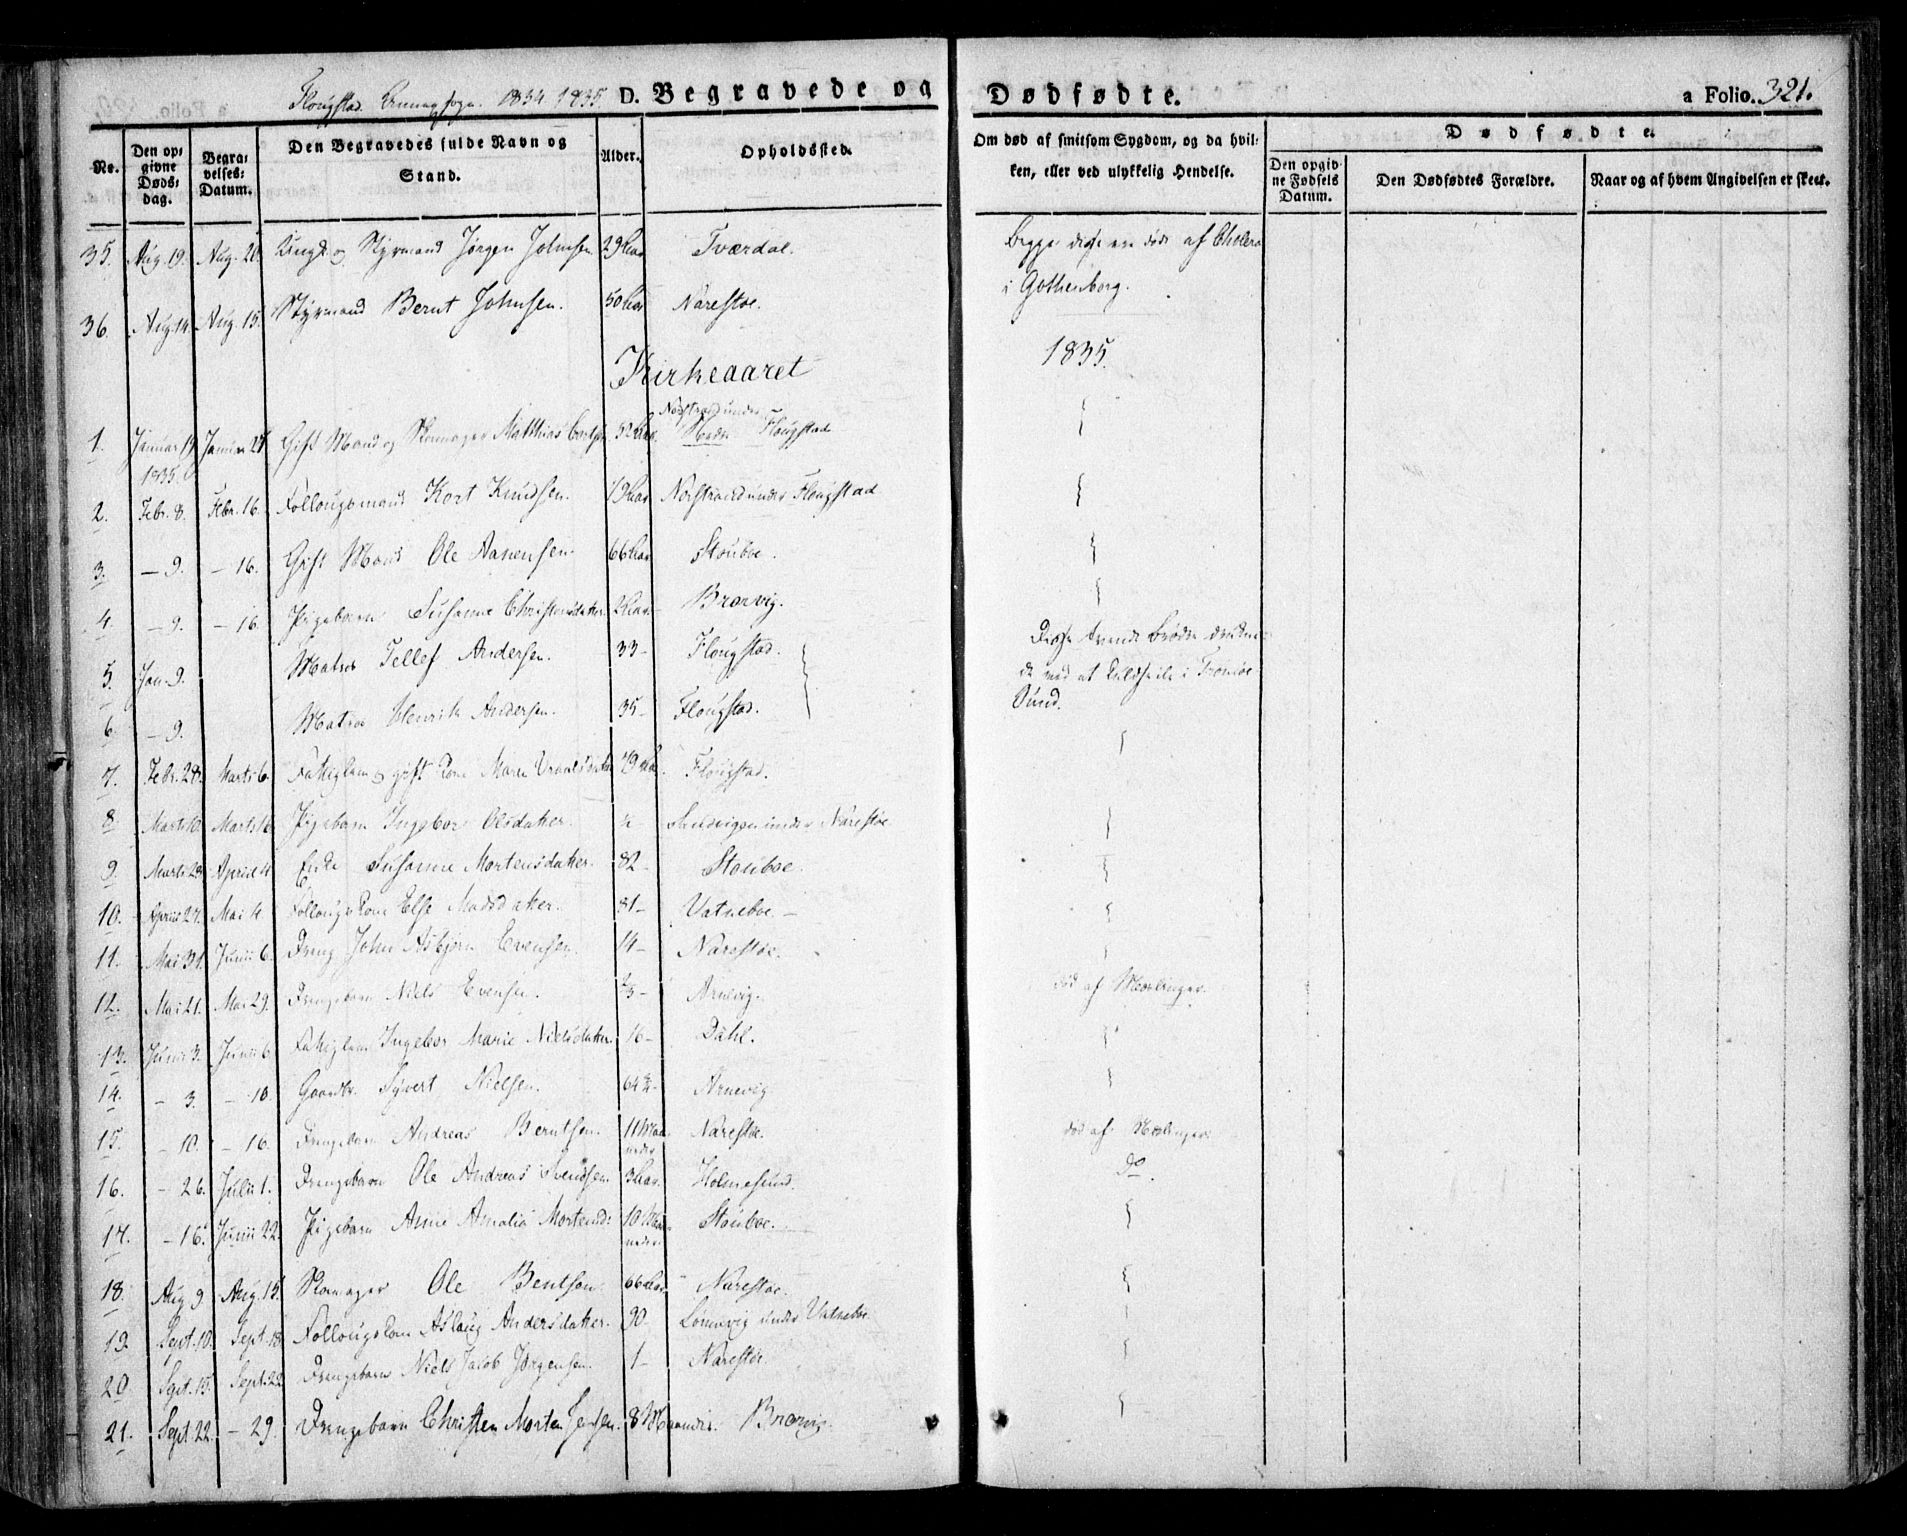 Flougstad Annexsogn. 1834 1835. D. Begravede og Dødfødte. a Folio. 321.
No. Den opgivne Dødsdag. Begravelses-Datum. Den Begravedes fulde Navn og Stand. Alder. Opholdssted. Om død af smitsom Sygdom, og da hvilken, eller ved ulykkelig Hendelse. Dødfødte. Den opgivne Fødsels Datum. Den Dødfødtes Forældre. Naar og af hvem Angivelsen er skeet.
35. Aug. 19. Aug. 20. Ungk. og Styrmand Jørgen Johnsen 29 Aar Tværdal. Begge disse ere døde af Cholera
i Gothenborg.
36. Aug. 14. Aug. 15. Styrmand Bernt Johnsen. 50 Aar Narestøe.
Kirkeaaret 1835.
1. Januar 19 Januar 27 Gift Mand og Skomager Matthias 52 Aar. Norstrand under
Flougstad
1835.
2. Febr. 8. Febr. 16. Follougsmand Kort Knudsen. 79 Aar Norstrand under Flougstad
3. - 9. - 16. Gift Mand Ole Aanensen. 66 Aar Stouboe.
4. - 9. - 16. Pigebarn Susanne Christensdatter 2 Aar. Brørvig.
5. Jan. 9. Matros Tellef Andersen. 33 - Flougstad. Disse tvende Brødre drukne-
de ved at kuldseile i Tromøe
Sund.
6. - 9. Matros Henrik Andersen. 35 - Flougstad.
7. Febr. 28. Marts 6. Fattiglem og gift Kone Maren 79 Aar. Flougstad.
8 Marts 10. Marts 16 Pigebarn Ingebor Olsdatter. under Narestøe
9. Marts 28 April 4 Enke Susanne Mortensdatter. 82 - Stouboe.
10. April 27. Mai 4. Follougs Kone Else Madsdatter. 81 - Vatneboe. -
11. Mai 31. Junii 6. Dreng John Asbjørn Evensen. 14 - Narestøe.
12. Mai 21. Mai 29. Drengebarn Niels Evensen. Arnevig. død af Mæslinger.
13. Junii 3. Junii 6 Fattiglem Ingebor Marie Nielsdatter. 16 - Dahl.
14. - 3. - 10 Gaardbr. Syvert Nielsen. 64 Arnevig
15. - 10. - 16. Drengebarn Andreas Berntsen. 11 Maa-
neder Narestøe. død af Mæslinger.
16. - 26. Julii 1. Drengebarn Ole Andreas Svendsen. 3 Aar. Holmesund. do.
17. - 16. Junii 22. Pigebarn Anne Amalia Mortensd: 10 Maa-
neder Stouboe.
18. Aug. 9 Aug. 15. Skomager Ole Bentsen. 66 Aar Narestøe.
19. Sept. 10. Sept. 18. Follougs Kone Aslaug Andersdatter. 90. under Vatneboe
20. Sept. 15. Sept. 22 Drengebarn Niels Jacob Jørgensen. 1 - Narestøe.
21. Sept. 22. - 29. Drengebarn Christen Morten Jensen. 8 Maaneder. Brørvig